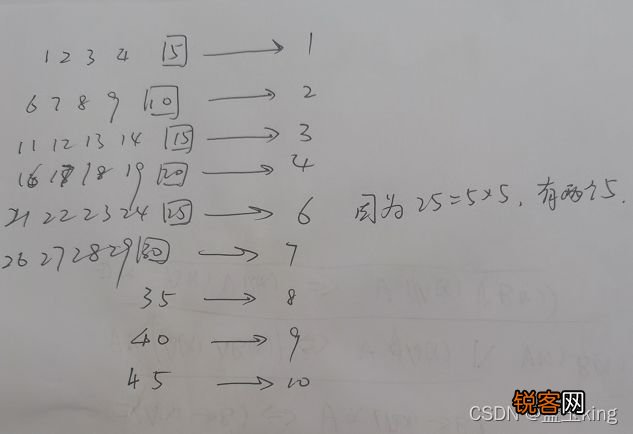 1 2 3 4 5 → 1
6 7 8 9 10 → 2
11 12 13 14 15 → 3
16 17 18 19 20 → 4
21 22 23 24 25 → 6 因为 25=5×5, 有两个5.
26 27 28 29 30 → 7
35 → 8
40 → 9
45 → 10
锐客网
CSDN king